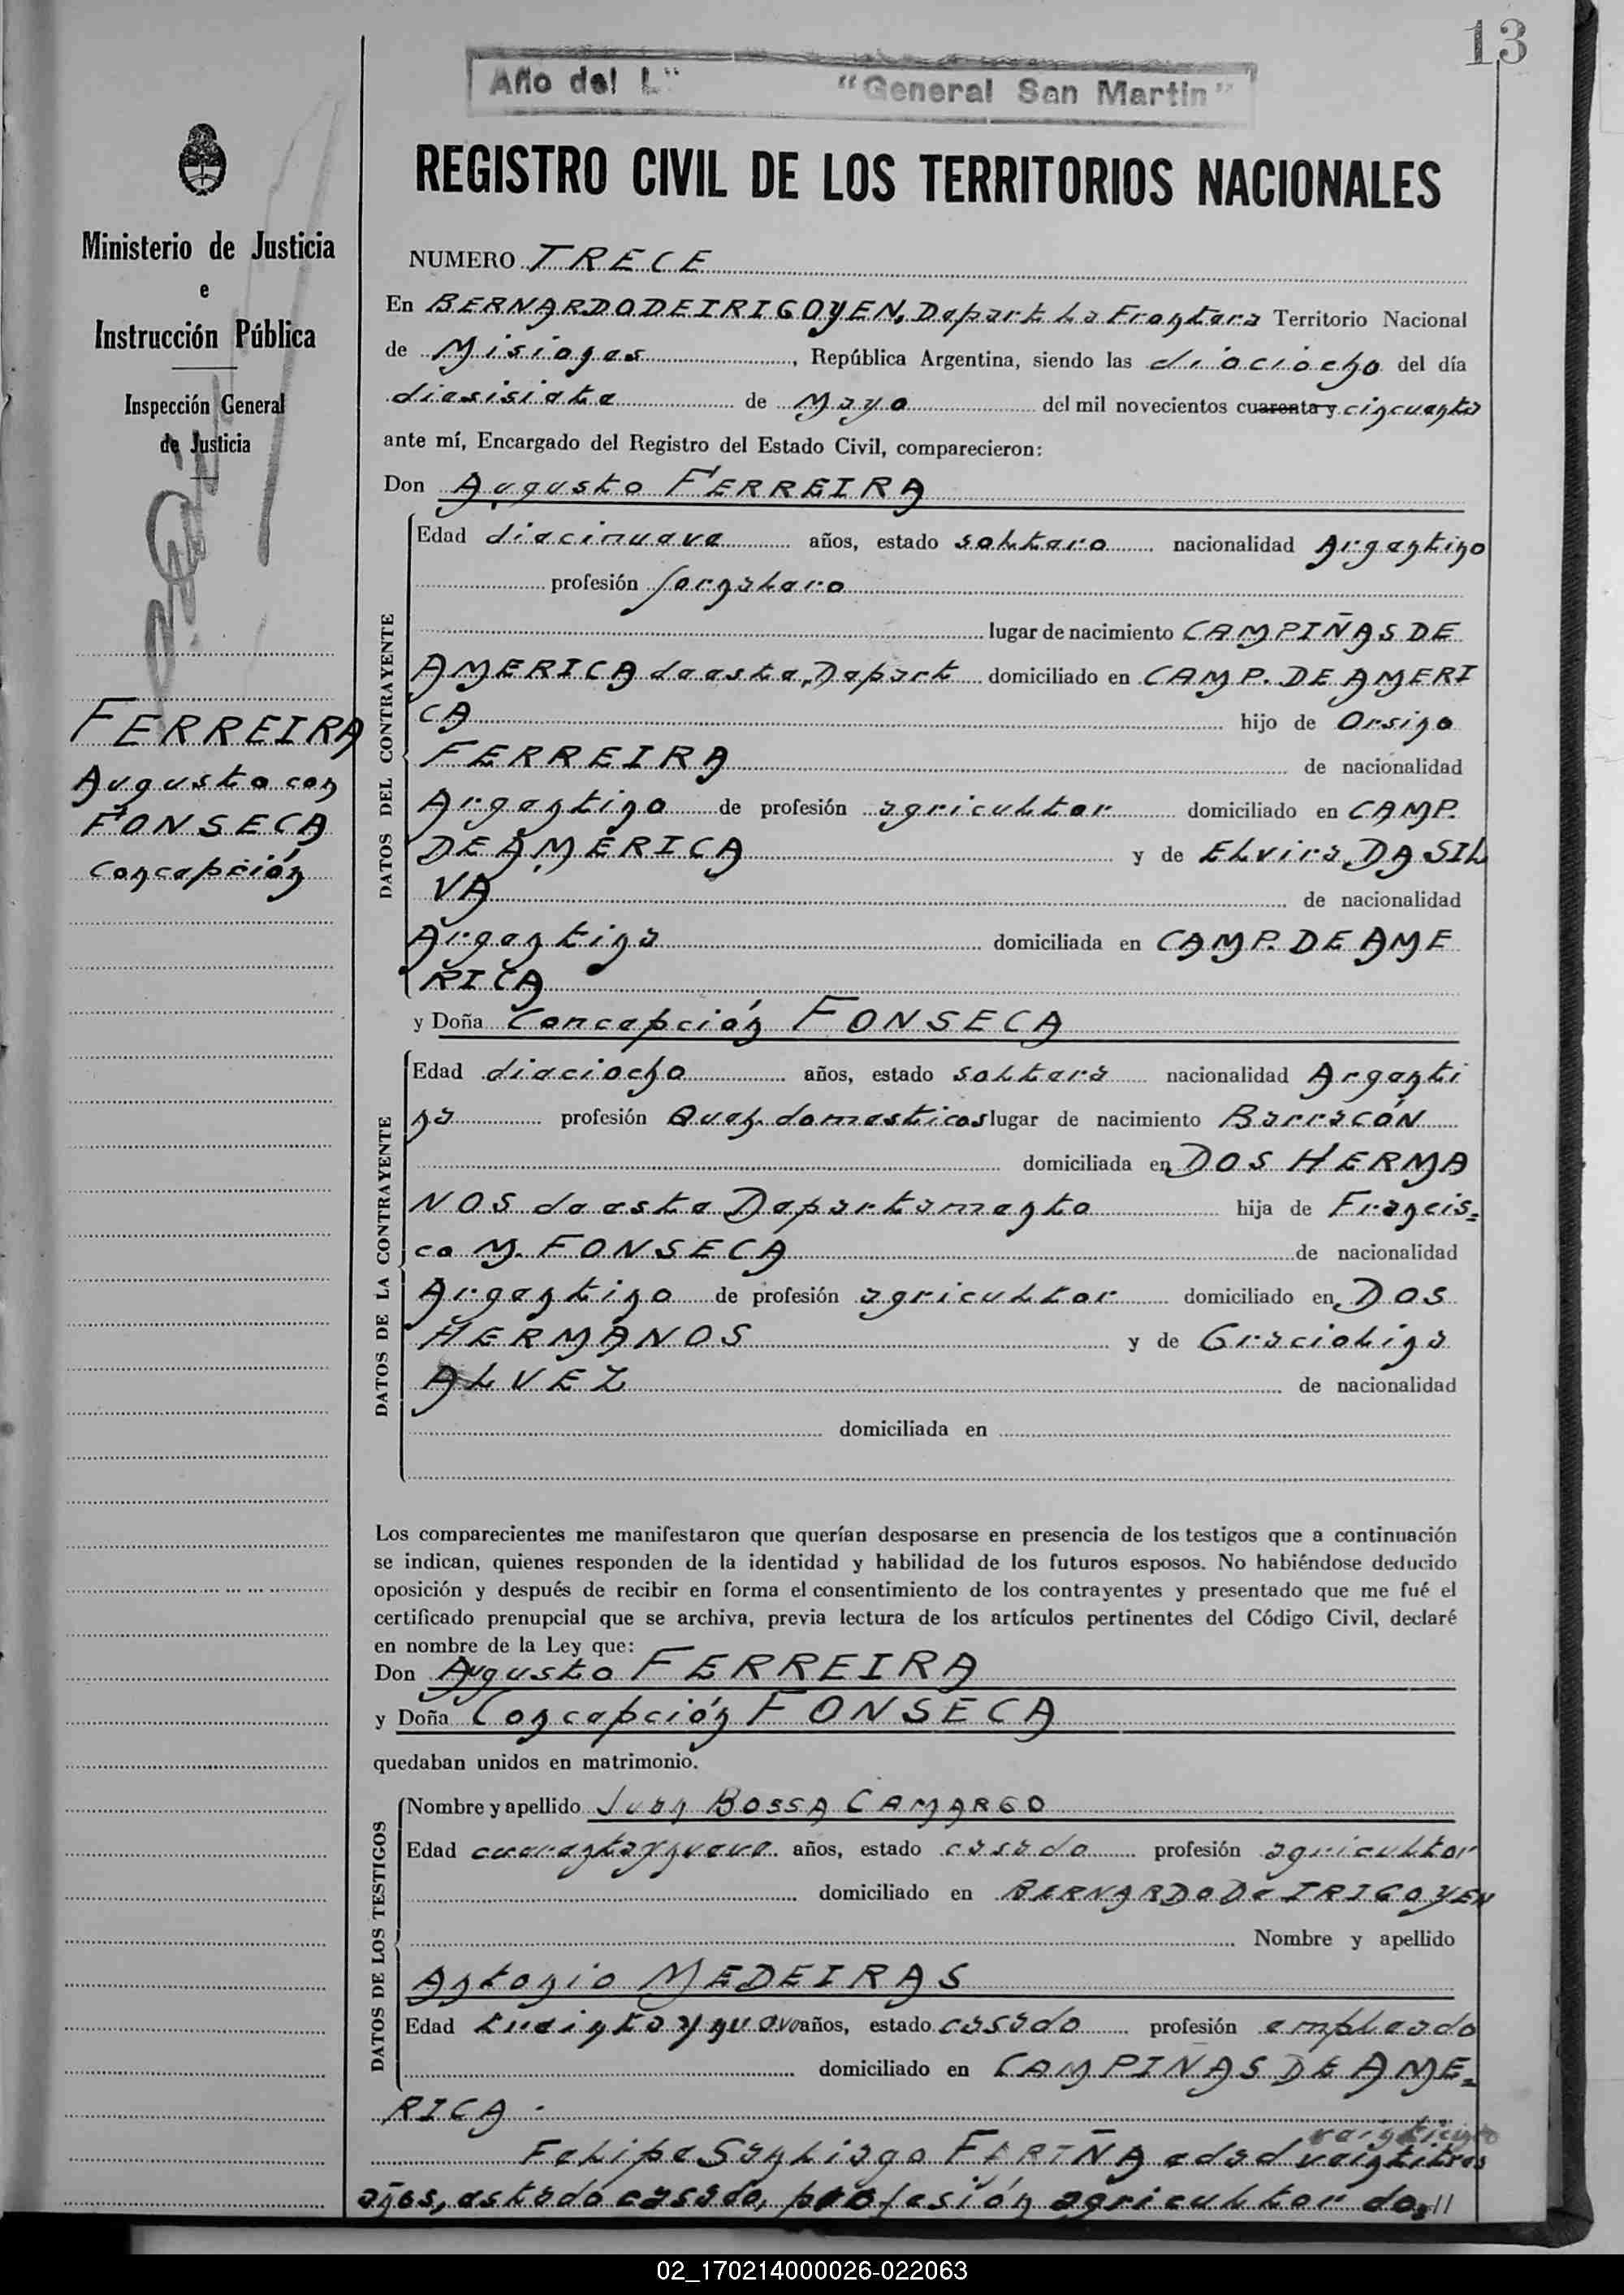 13
Año del L" "General San Martin"
REGISTRO CIVIL DE LOS TERRITORIOS NACIONALES
Ministerio de Justicia
e
Instrucción Pública
Inspección General
de Justicia
FERREIRA
Augusto con
FONSECA
Concepción
NUMERO TRECE
En BERNARDO DE IRIGOYEN, Depart. La Frontera Territorio Nacional
de Misiones, República Argentina, siendo las dieciocho del día
diesisiete de Mayo del mil novecientos cuarenta y cincuenta
ante mí, Encargado del Registro del Estado Civil, comparecieron:
Don Augusto FERREIRA
DATOS DEL CONTRAYENTE
Edad diecinueve años, estado soltero nacionalidad Argentino
profesión jornalero
lugar de nacimiento CAMPIÑAS DE
AMERICA de este Depart domiciliado en CAMP. DE AMERI
CA hijo de Orsino
FERREIRA de nacionalidad
Argentino de profesión agricultor domiciliado en CAMP.
DE AMERICA y de Elvira DA SIL
VA de nacionalidad
Argentina domiciliada en CAMP. DE AME
RICA
y Doña Concepción FONSECA
DATOS DE LA CONTRAYENTE
Edad dieciocho años, estado soltera nacionalidad Argenti
na profesión Queh. domesticos lugar de nacimiento Barracón
domiciliada en DOS HERMA
NOS de este Departamento hija de Francis=
co M. FONSECA de nacionalidad
Argentino de profesión agricultor domiciliado en DOS
HERMANOS y de Graciolina
ALVEZ de nacionalidad
domiciliada en
Los comparecientes me manifestaron que querían desposarse en presencia de los testigos que a continuación
se indican, quienes responden de la identidad y habilidad de los futuros esposos. No habiéndose deducido
oposición y después de recibir en forma el consentimiento de los contrayentes y presentado que me fué el
certificado prenupcial que se archiva, previa lectura de los artículos pertinentes del Código Civil, declaré
en nombre de la Ley que:
Don Augusto FERREIRA
y Doña Concepción FONSECA
quedaban unidos en matrimonio.
DATOS DE LOS TESTIGOS
Nombre y apellido Juan BOSSA CAMARGO
Edad cuarentaynueve años, estado casado profesión agricultor
domiciliado en BERNARDO De IRIGOYEN
Nombre y apellido
Antonio MEDEIRAS
Edad treintaynuove años, estado casado profesión empleado
domiciliado en CAMPIÑAS DE AME=
RICA.
Felipe Santiago FARIÑA edad veintitres
años, estado casado, profesión agricultor do=//
02_170214000026-022063